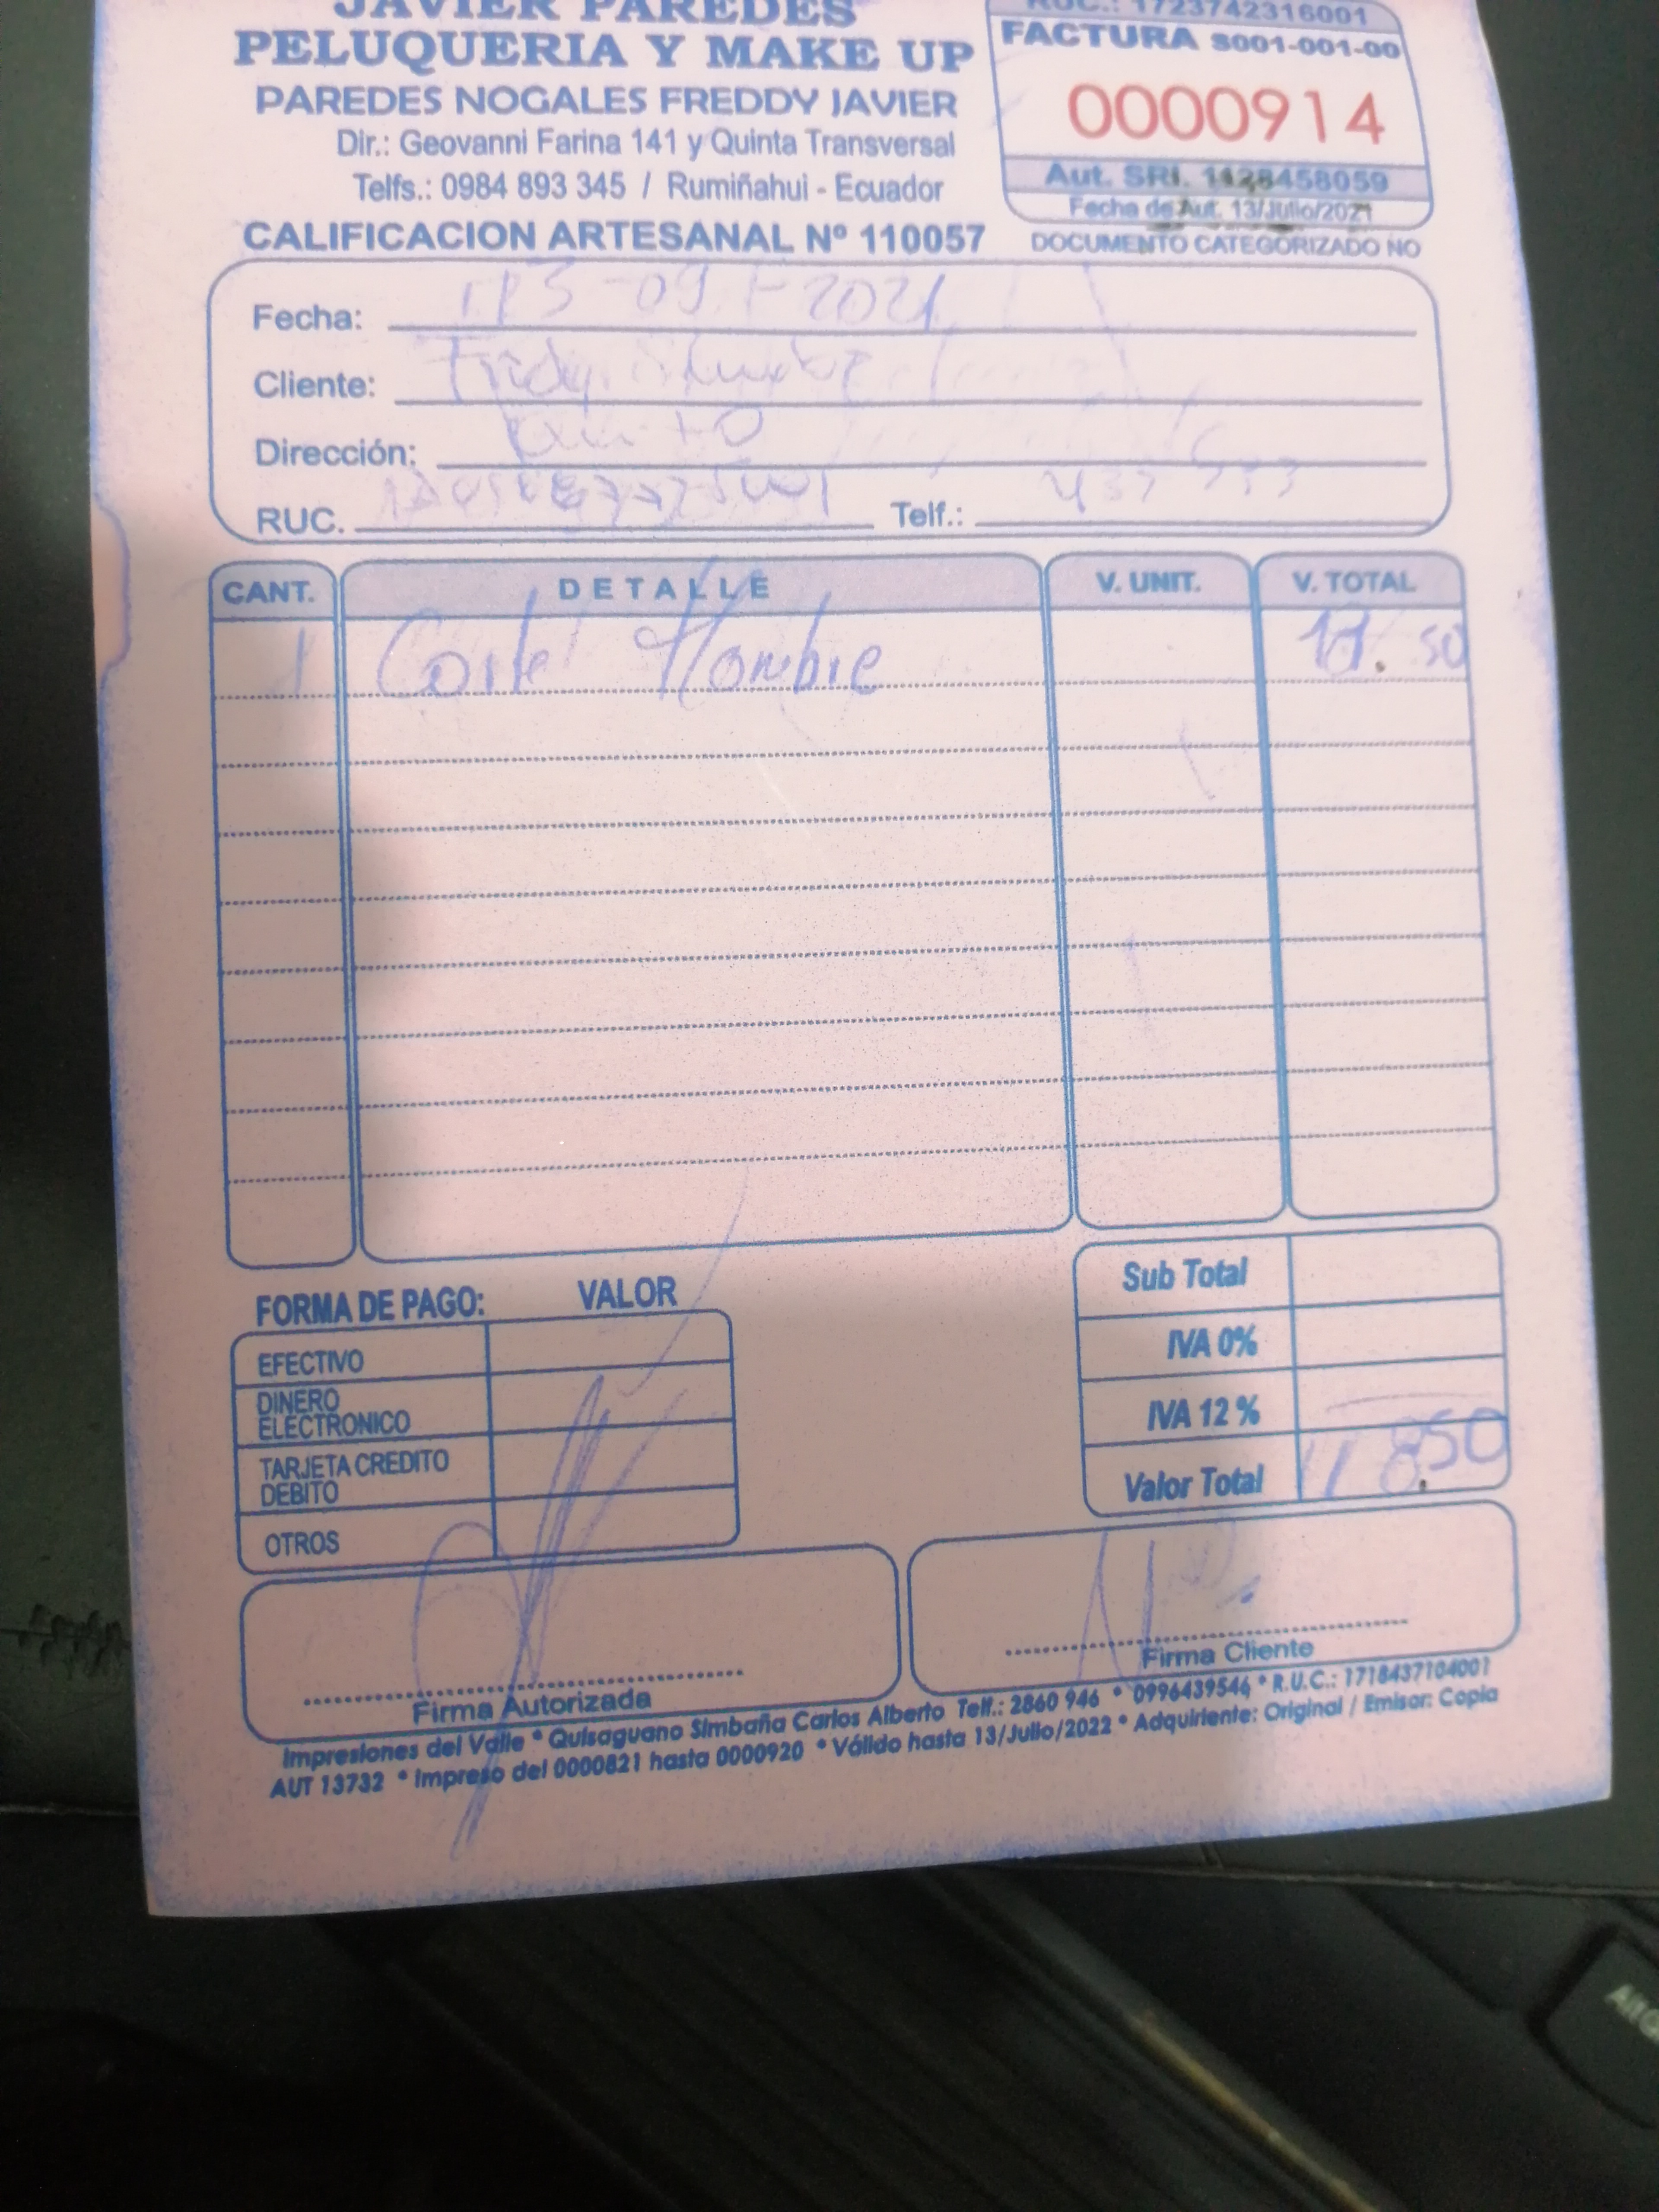 JAVIER PAREDES
PELUQUERIA Y MAKE UP
PAREDES NOGALES FREDDY JAVIER
Dir.: Geovanni Farina 141 y Quinta Transversal
Telfs.: 0984 893 345 / Rumiñahui - Ecuador
CALIFICACION ARTESANAL Nº 110057
RUC.: 1723742316001
FACTURA S001-001-00
0000914
Aut. SRI. 1128458059
Fecha de Aut. 13/Julio/2021
DOCUMENTO CATEGORIZADO NO
Fecha: 2021
Cliente:
Dirección: Quito
RUC. Telf.:
CANT. DETALLE V. UNIT. V. TOTAL
1 Corte Hombre
FORMA DE PAGO: VALOR
EFECTIVO
DINERO ELECTRONICO
TARJETA CREDITO DEBITO
OTROS
Sub Total
IVA 0%
IVA 12 %
Valor Total
Firma Autorizada
Firma Cliente
Impresiones del Valle * Quisaguano Simbaña Carlos Alberto Telf.: 2860 946 * 0996439546 * R.U.C.: 1718437104001
AUT 13732 * Impreso del 0000821 hasta 0000920 * Válido hasta 13/Julio/2022 * Adquiriente: Original / Emisor: Copia